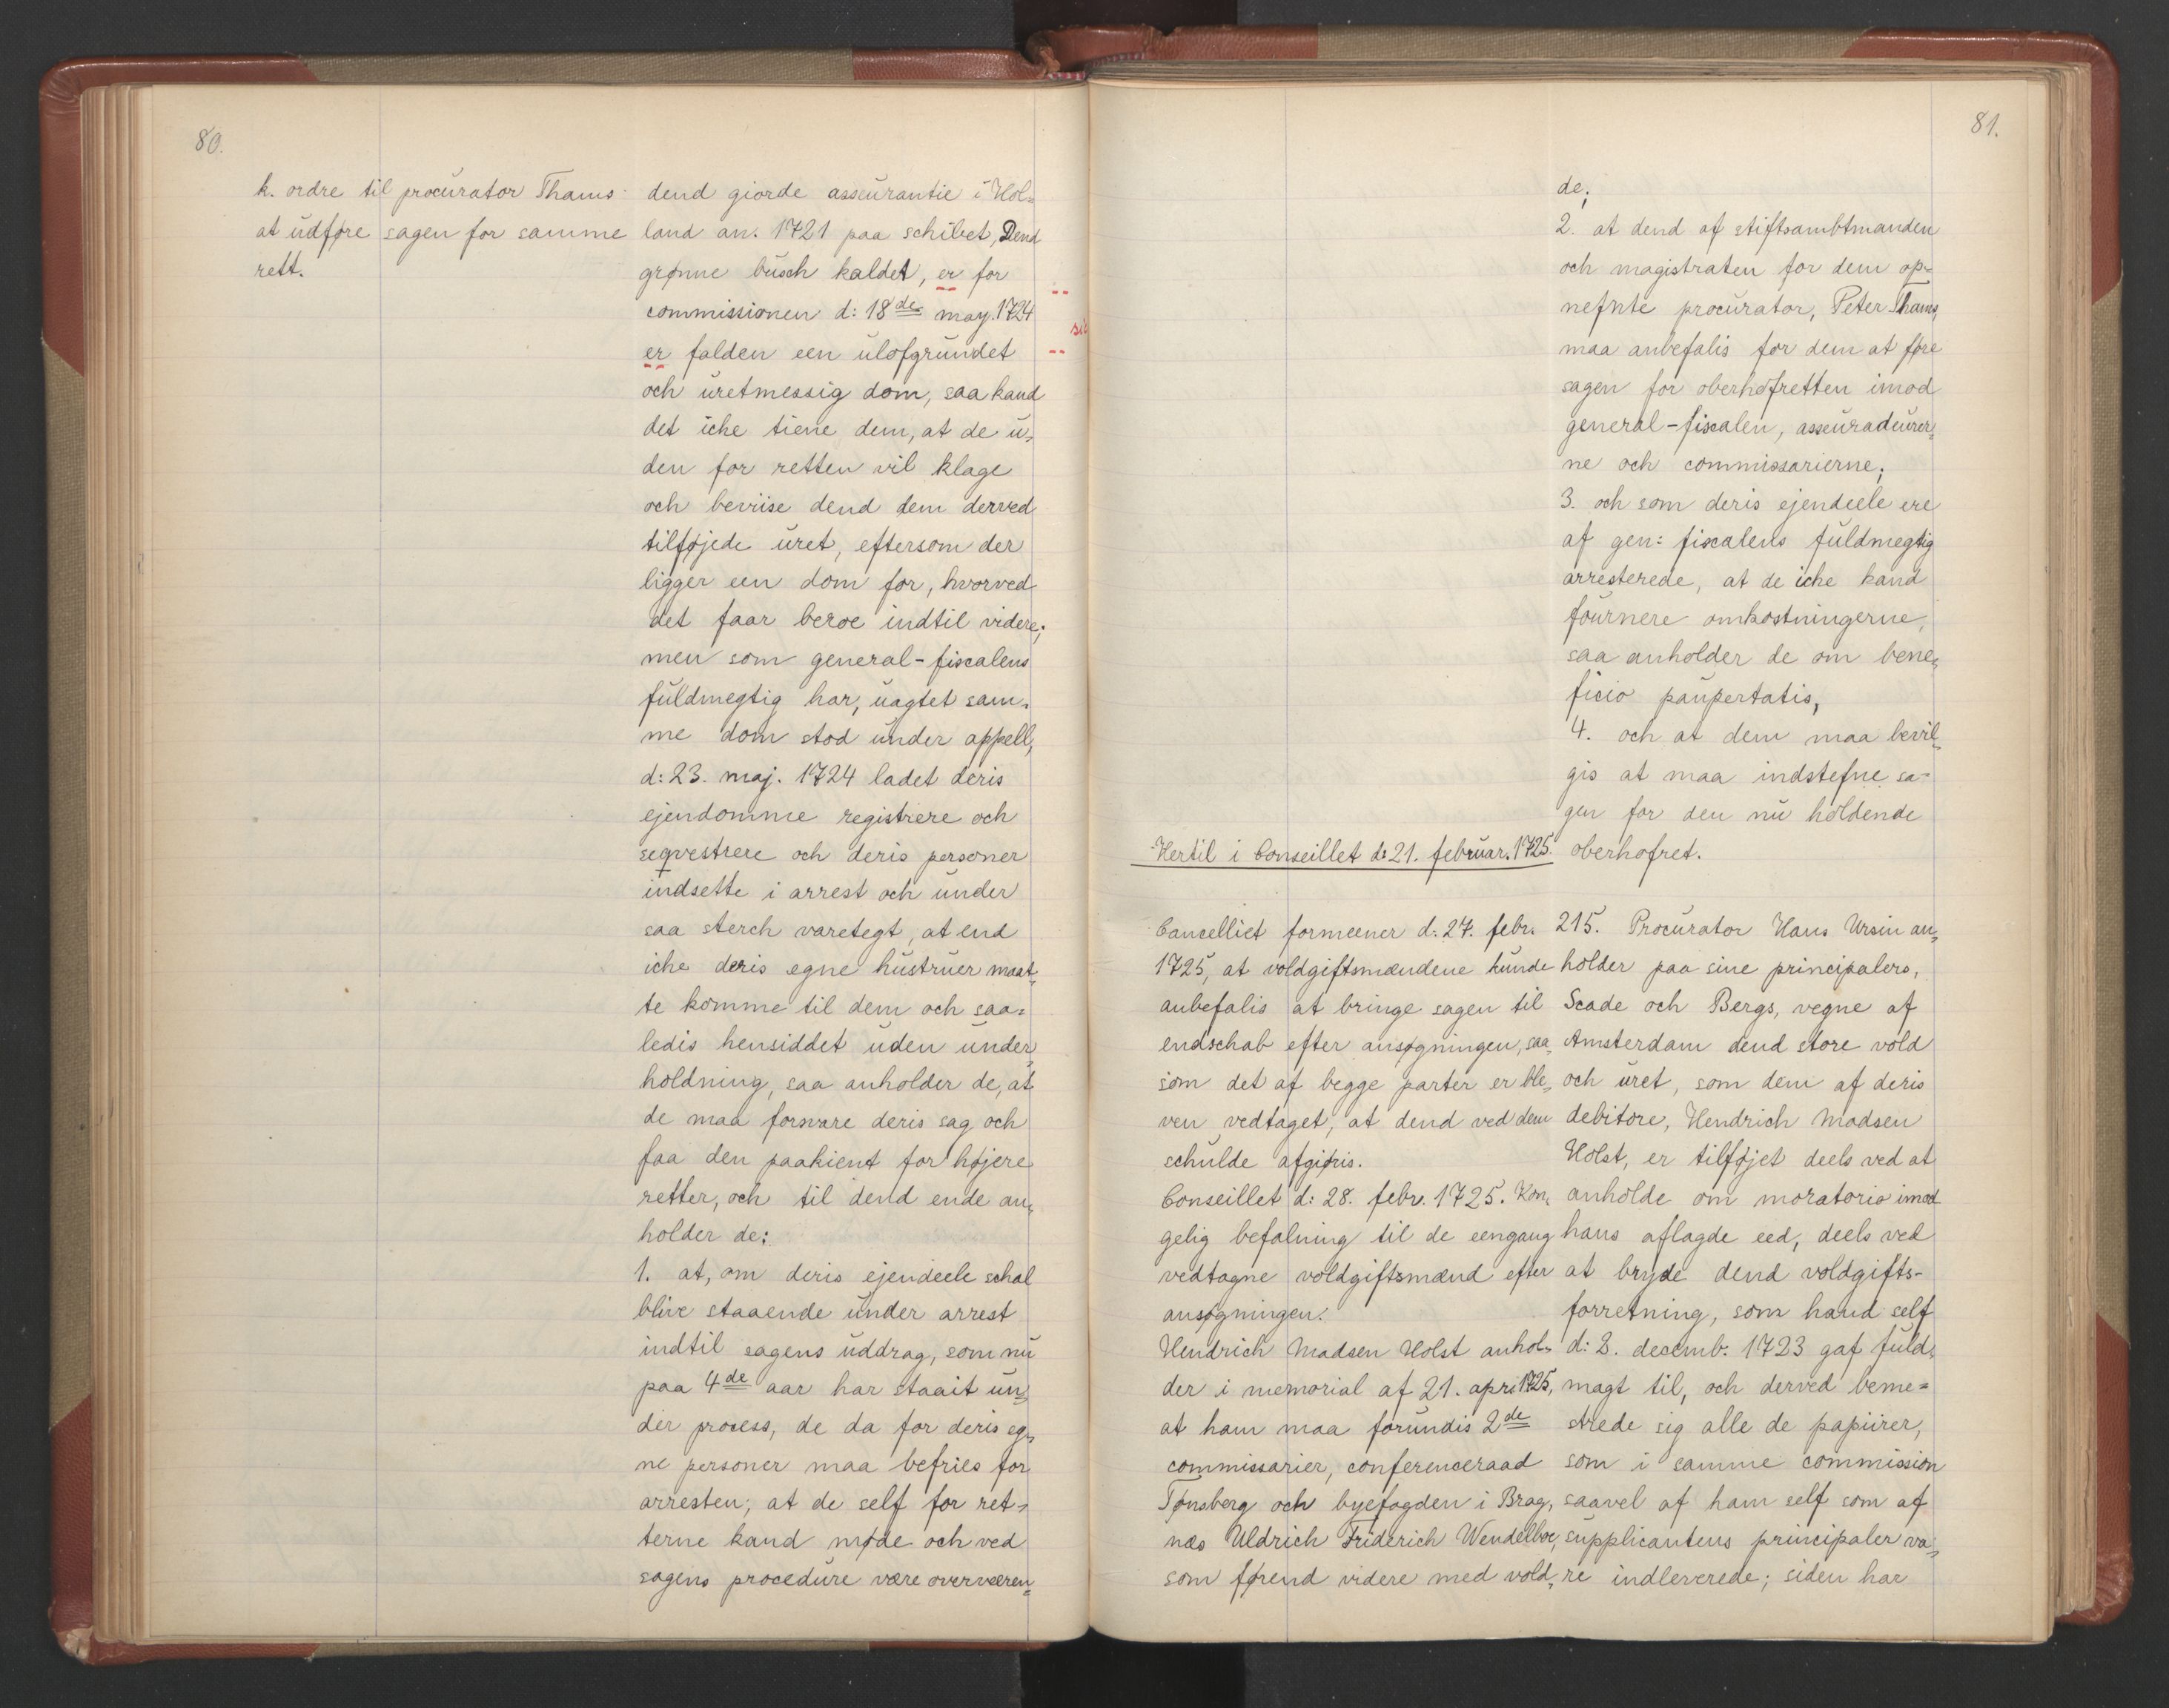 80.
k. ordre til procurator Thams
at udføre sagen for samme
rett.
dend giorde asseurantie i Hol=
land an. 1721 paa schibet, Dend
grønne busch kaldet, er for
commissionen d: 18de may. 1724
er falden een ulofgrundet
och uretmessig dom, saa kand
det iche tiene dem, at de u=
den for retten vil klage
och beviise dend dem derved
tilføjede uret, eftersom der
ligger een dom for, hvorved
det faar beroe indtil videre;
men som general-fiscalens
fuldmegtig har, uagtet sam=
me dom stod under appell,
d: 23. maj. 1724 ladet deris
ejendomme registrere och
seqvestrere och deris personer
indsette i arrest och under
saa sterch varetegt, at end
iche deris egne hustruer maat=
te komme til dem och saa=
ledis hensiddet uden under=
holdning, saa anholder de, at
de maa forsvare deris sag och
faa den paakient for højere
retter, och til dend ende an=
holder de:
1. at, om deris ejendeele schal
blive staaende under arrest
indtil sagens uddrag, som nu
paa 4de aar har staait un=
der process, de da for deris eg=
ne personer maa befries for
arresten; at de self for ret=
terne kand møde och ved
sagens procedure være overværen=
81.
de;
2. at dend af stiftsambtmanden
och magistraten for dem op=
nefnte procurator, Peter Thams,
maa anbefalis for dem at føre
sagen for oberhofretten imod
general-fiscalen, asseuradeurer=
ne och commissarierne;
3. och som deris ejendeele ere
af gen: fiscalens fuldmegtig
arresterede, at de iche kand
fournere omkostningerne,
saa anholder de om bene=
ficio paupertatis,
4. och at dem maa bevil=
gis at maa indstefne sa=
gen for den nu holdende
oberhofret.
Hertil i Conseillet d: 21. februar. 1725.
Cancelliet formeener d: 27. febr.
1725, at voldgiftsmændene kunde
anbefalis at bringe sagen til
endschab efter ansøgningen, saa=
som det af begge parter er ble=
ven vedtaget, at dend ved dem
schulde afgiøris.
Conseillet d: 28. febr. 1725. Kon=
gelig befalning til de eengang
vedtagne voldgiftsmænd efter
ansøgningen.
Hendrich Madsen Holst anhol=
der i memorial af 21. apr. 1725,
at ham maa forundis 2de
commissarier, conferenceraad
Tønsberg och byefogden i Brag=
næs Uldrich Friderich Wendelboe,
som førend videre med vold=
215. Procurator Hans Ursin an=
holder paa sine principalers,
Scade och Bergs, vegne af
Amsterdam dend store vold
och uret, som dem af deris
debitore, Hendrich Madsen
Holst, er tilføjet deels ved at
anholde om moratorio imod
hans aflagde eed, deels ved
at bryde dend voldgifts-
forretning, som hand self
d: 2. decemb. 1723 gaf fuld=
magt til, och derved beme=
strede sig alle de papiirer,
som i samme commission
saavel af ham self som af
supplicantens principaler va=
re indleverede; siden har